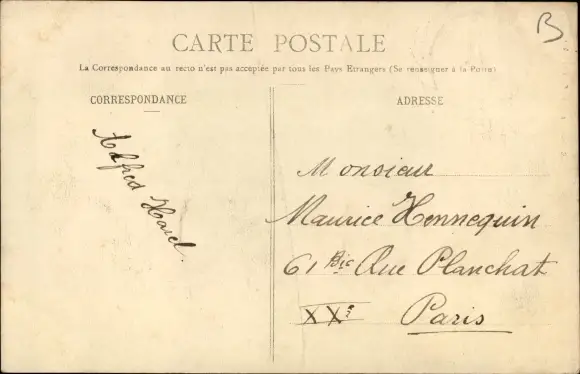 B
CARTE POSTALE
La Correspondance au recto n'est pas acceptée par tous les Pays Etrangers (Se renseigner à la Poste)
CORRESPONDANCE
ADRESSE
Alfred Harel.
Monsieur
Maurice Hennequin
61 Bis Rue Planchat
XXe
Paris